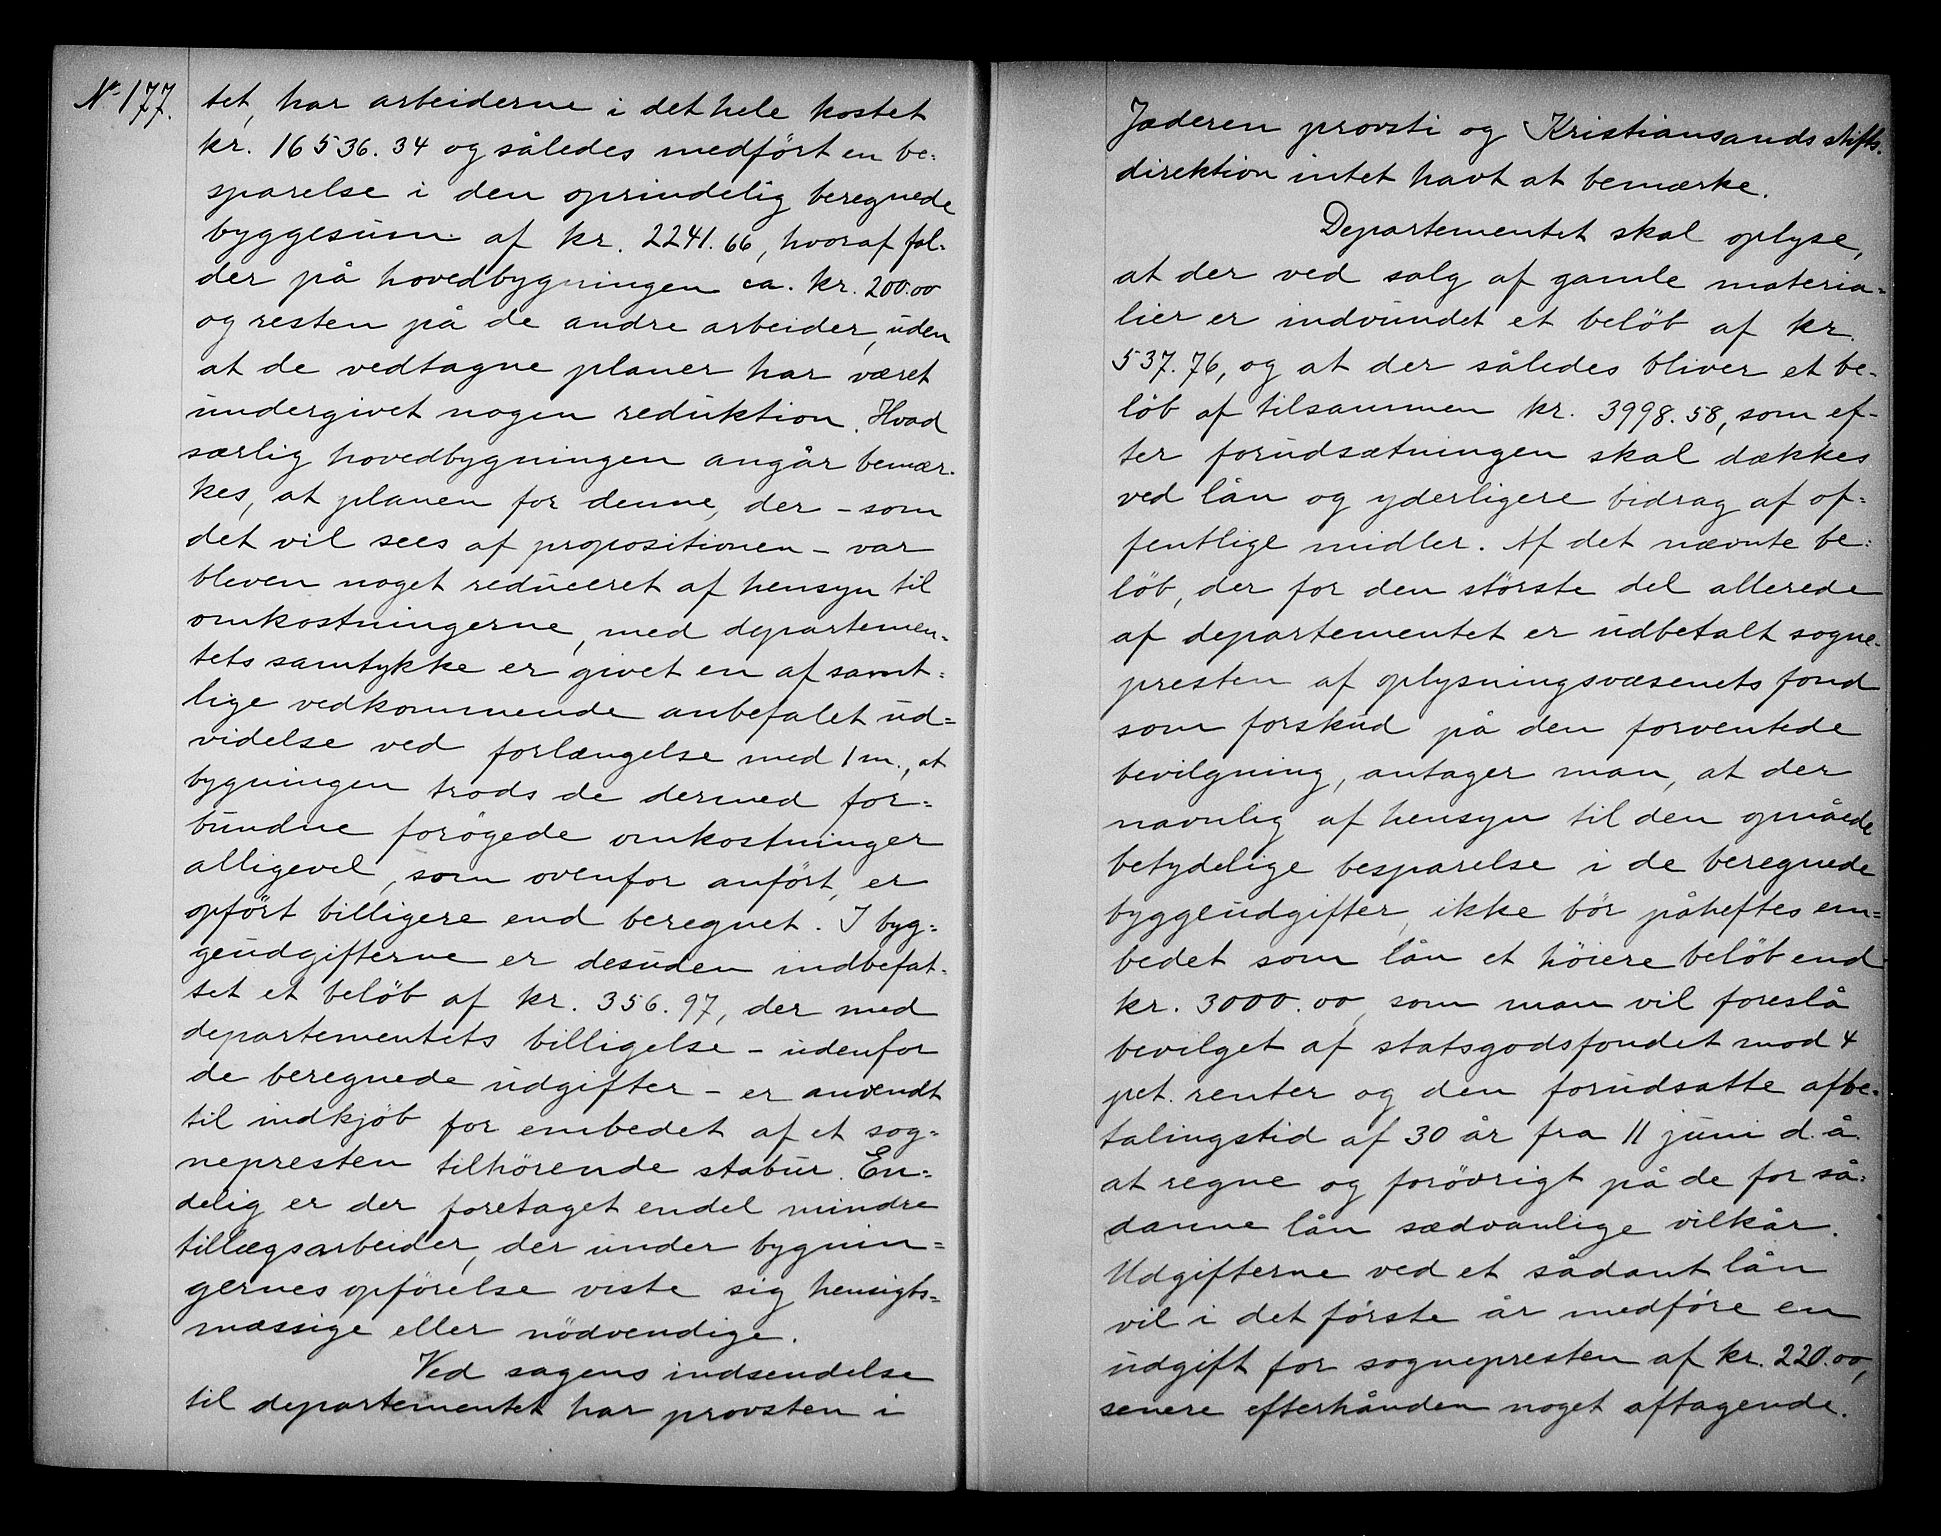 No 177.
tet, har arbeiderne i det hele kostet
kr. 16536.34 og således medført en be-
sparelse i den oprindelig beregnede
byggesum af kr. 2241.66, hvoraf fal-
der på hovedbygningen ca. kr. 200.00
og resten på de andre arbeider, uden
at de vedtagne planer har været
undergivet nogen reduktion. Hvad
særlig hovedbygningen angår bemær-
kes, at planen for denne, der – som
det vil sees af propositionen – var
bleven noget reduceret af hensyn til
omkostningerne, med departemen-
tets samtykke er givet en af samt-
lige vedkommende anbefalet ud-
videlse ved forlængelse med 1 m., at
bygningen trods de dermed for-
bundne forøgede omkostninger
alligevel, som ovenfor anført, er
opført billigere end beregnet. I byg-
geudgifterne er desuden indbefat-
tet et beløb af kr. 356.97, der med
departementets billigelse – udenfor
de beregnede udgifter – er anvendt
til indkjøb for embedet af et sog-
nepresten tilhørende stabur. En-
delig er der foretaget endel mindre
tillægsarbeider, der under bygnin-
gernes opførelse viste sig hensigts-
mæssige eller nødvendige.
Ved sagens indsendelse
til departementet har provsten i
Jæderen provsti og Kristiansands stifts-
direktion intet havt at bemærke.
Departementet skal oplyse,
at der ved salg af gamle materia-
lier er indvundet et beløb af kr.
537.76, og at der således bliver et be-
løb af tilsammen kr. 3998.58, som ef-
ter forudsætningen skal dækkes
ved lån og yderligere bidrag af of-
fentlige midler. Af det nævnte be-
løb, der for den største del allerede
af departementet er udbetalt sogne-
presten af oplysningsvæsenets fond
som forskud på den forventede
bevilgning, antager man, at der
navnlig af hensyn til den opnåede
betydelige besparelse i de beregnede
byggeudgifter, ikke bør påheftes em-
bedet som lån et høiere beløb end
kr. 3000.00, som man vil foreslå
bevilget af statsgodsfondet mod 4
pct. renter og den forudsatte afbe-
talingstid af 30 år fra 11 juni d. å.
at regne og forøvrigt på de for så-
danne lån sædvanlige vilkår.
Udgifterne ved et sådant lån
vil i det første år medføre en
udgift for sognepresten af kr. 220.00,
senere efterhånden noget aftagende.